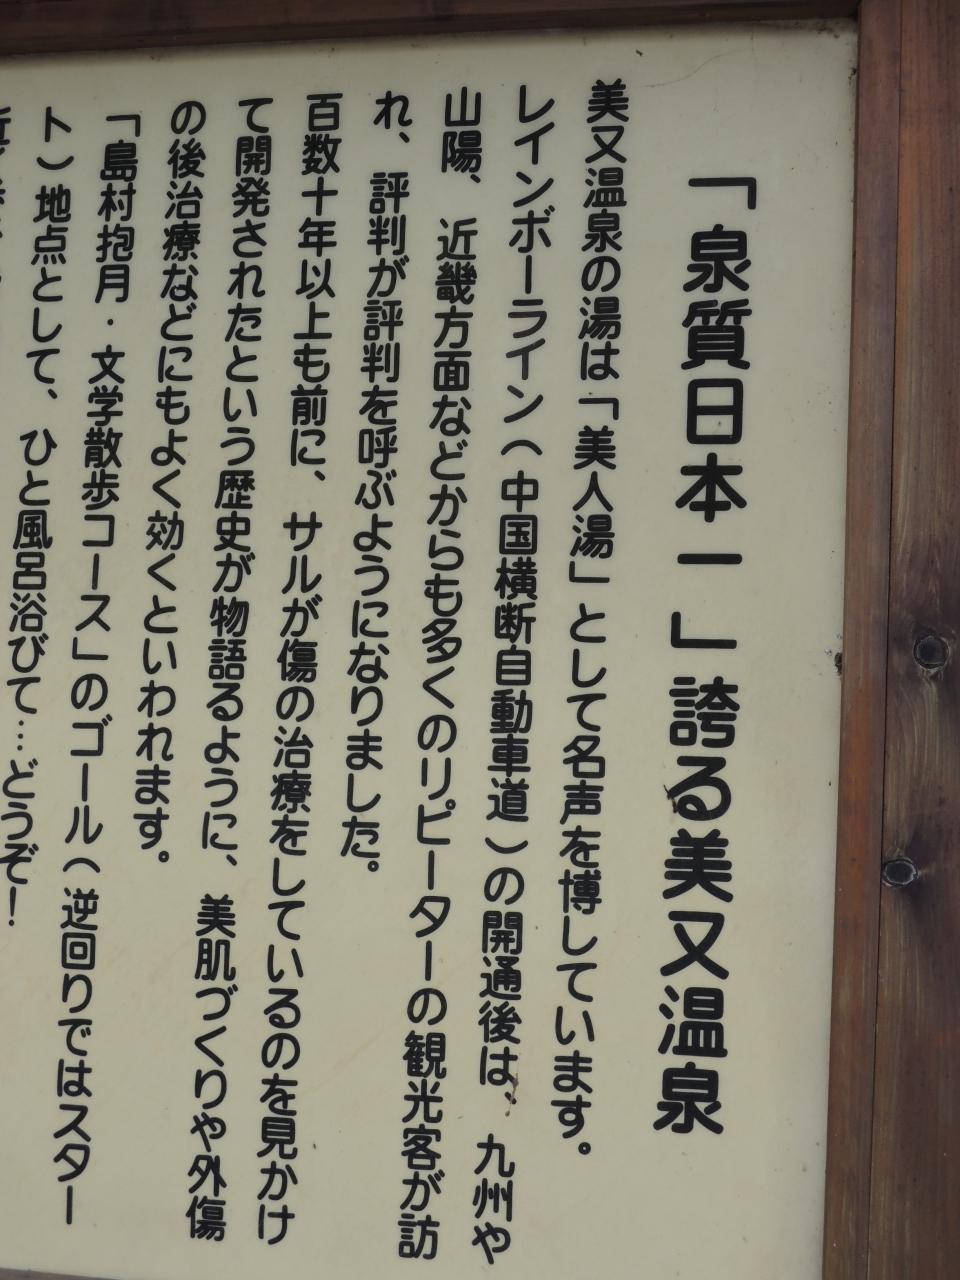 「泉質日本一」誇る美又温泉
美又温泉の湯は「美人湯」として名声を博しています。
レインボーライン（中国横断自動車道）の開通後は、九州や
山陽、近畿方面などからも多くのリピーターの観光客が訪
れ、評判が評判を呼ぶようになりました。
百数十年以上も前に、サルが傷の治療をしているのを見かけ
て開発されたという歴史が物語るように、美肌づくりや外傷
の後治療などにもよく効くといわれます。
「島村抱月・文学散歩コース」のゴール（逆回りではスター
ト）地点として、ひと風呂浴びて…どうぞ！